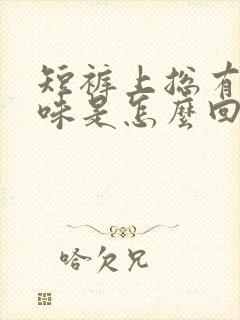 短裤上总有
味是怎麽回
哈欠兄